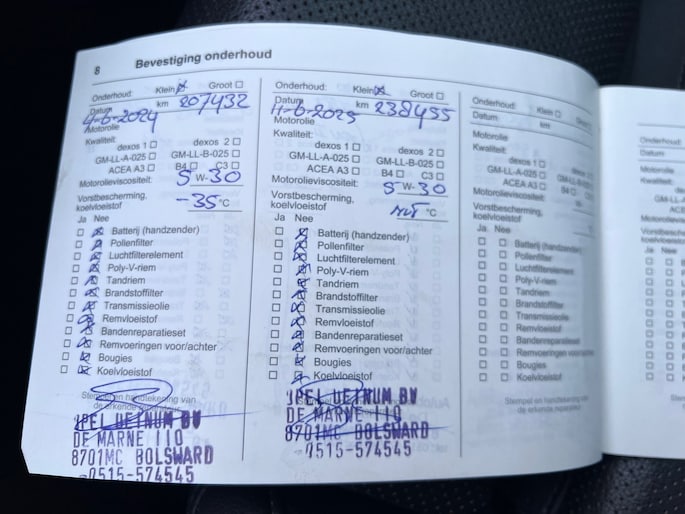 8 Bevestiging onderhoud
Onderhoud: Klein Groot
Datum km 207432
4-6-2024
Motorolie
Kwaliteit:
dexos 1 dexos 2
GM-LL-A-025 GM-LL-B-025
ACEA A3 B4 C3
Motorolieviscositeit: 5 W-30
Vorstbescherming, koelvloeistof -35 °C
Ja Nee
Batterij (handzender)
Pollenfilter
Luchtfilterelement
Poly-V-riem
Tandriem
Brandstoffilter
Transmissieolie
Remvloeistof
Bandenreparatieset
Remvoeringen voor/achter
Bougies
Koelvloeistof
Stempel en handtekening van
de erkende reparateur
DE MARNE 110
8701MC BOLSWARD
0515-574545
Onderhoud: Klein Groot
Datum km 238455
11-6-2025
Motorolie
Kwaliteit:
dexos 1 dexos 2
GM-LL-A-025 GM-LL-B-025
ACEA A3 B4 C3
Motorolieviscositeit: 5 W-30
Vorstbescherming,
koelvloeistof °C
Ja Nee
Batterij (handzender)
Pollenfilter
Luchtfilterelement
Poly-V-riem
Tandriem
Brandstoffilter
Transmissieolie
Remvloeistof
Bandenreparatieset
Remvoeringen voor/achter
Bougies
Koelvloeistof
DE MARNE 110
8701MC BOLSWARD
0515-574545
Onderhoud: Klein
Datum km
Motorolie
Kwaliteit:
dexos 1
GM-LL-A-025
ACEA A3 B4
Motorolieviscositeit:
Vorstbescherming,
koelvloeistof
Ja Nee
Batterij (handzender)
Pollenfilter
Luchtfilterelement
Poly-V-riem
Tandriem
Brandstoffilter
Transmissieolie
Remvloeistof
Bandenreparatieset
Remvoeringen voor/achter
Bougies
Koelvloeistof
Stempel en handtekening van
de erkende reparateur
Onderhoud:
Datum
Motorolie
Kwaliteit:
Ja Nee